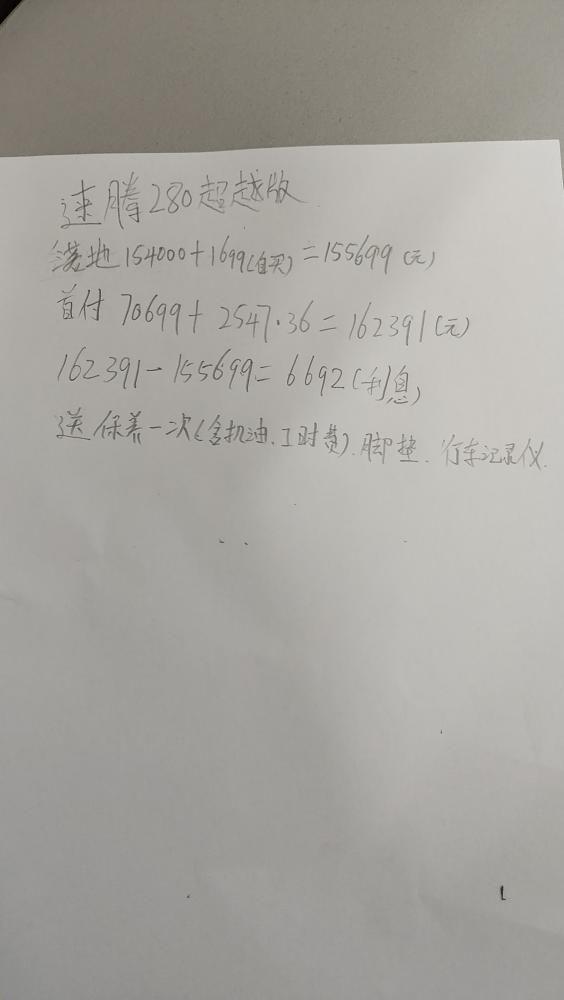 速腾280超越版
落地 154000+1699(自买)=155699(元)
首付 70699+2547·36=162391(元)
162391-155699=6692(利息)
送保养一次(含机油、工时费)、脚垫、行车记录仪.